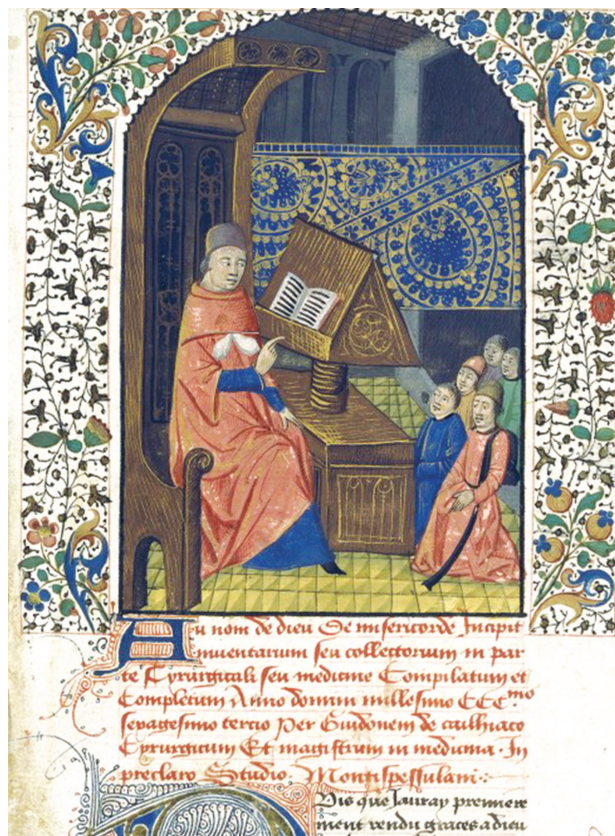 Au nom de dieu De misericorde Incipit
Inuentarium seu collectorium in par
te Cyrurgicali seu medicine Compilatum et
Completum Anno domini millesimo CCC.mo
sexagesimo tercio Per Guidonem de caulhiaco
Cyrurgicum Et magistrum in medicina. In
preclaro Studio. Montispessulani
Puis que Jauray premiere
ment rendu graces a dieu